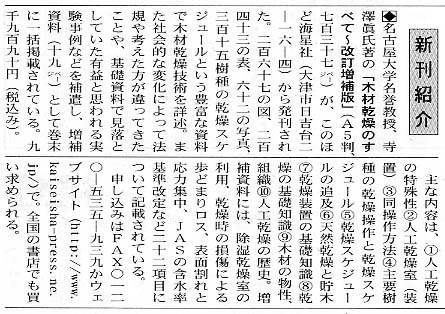 新刊紹介
◆名古屋大学名誉教授、寺
澤眞氏著の「木材乾燥のす
べて〈改訂増補版〉」(A5判、
七百三十七㌻)が、このほ
ど海星社(大津市日吉台二
―一六―四)から発刊され
た。二百六十七の図、二百
四十三の表、六十二の写真、
三百十五樹種の乾燥スケ
ジュールという豊富な資料
で木材乾燥技術を詳述。ま
た社会的な変化によって法
規や考えた方が違ってきた
ことや、基礎資料で見落と
していた有益と思われる実
験事例などを補遺し、増補
資料(十九㌻)として巻末
に一括掲載されている。九
千九百九十円(税込み)。
主な内容は、①人工乾燥
の特殊性②人工乾燥室(装
置)③同操作方法④主要樹
種の乾燥操作と乾燥スケ
ジュール⑤乾燥スケジュー
ルの追及⑥天然乾燥と貯木
⑦乾燥装置の基礎知識⑧乾
燥の基礎知識⑨木材の物性、
組織⑩人工乾燥の歴史。増
補資料には、除湿乾燥室の
利用、乾燥時の損傷による
歩どまりロス、表面割れと
応力集中、JASの含水率
基準改定など二十二項目に
ついて記載されている。
申し込みはFAX〇一二
〇―五三五―九三九かウェ
ブサイト(http://www.
kaiseisha-press.ne.
jp/)で。全国の書店でも買
い求められる。